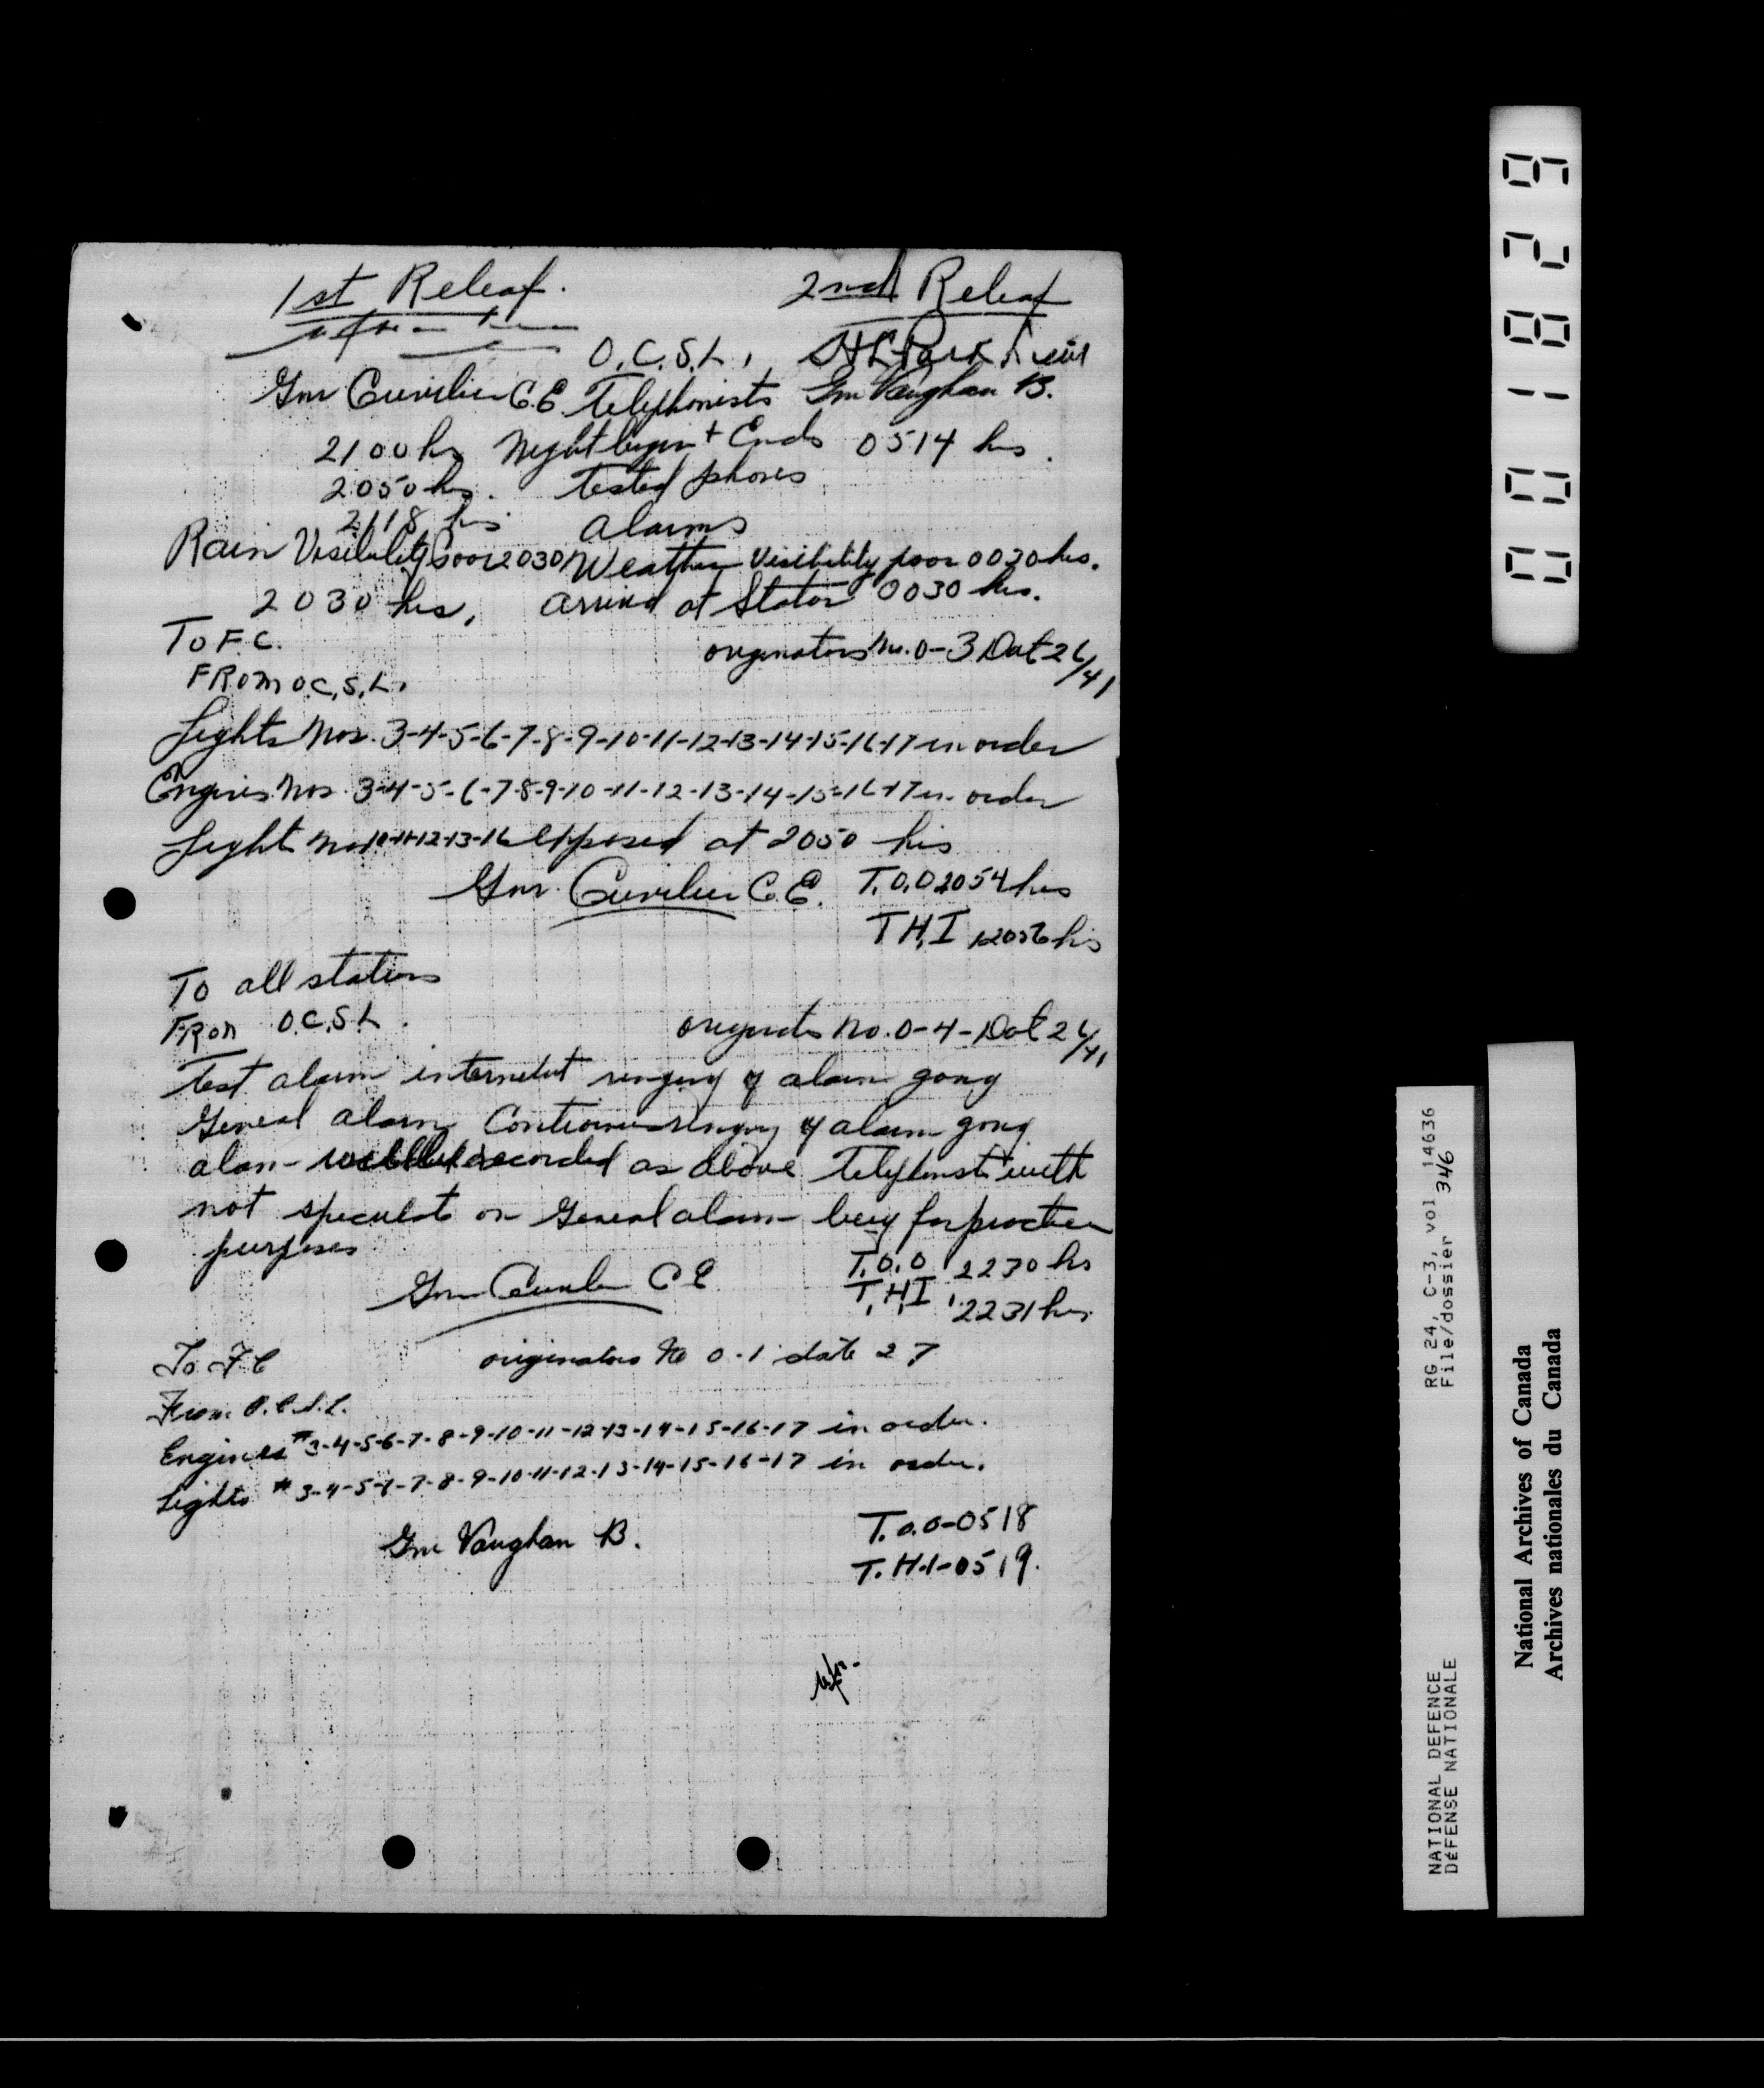 1st Releaf. 2nd Releaf
O.C.S.L. Lieut
Gnr Cuvilier C.E. Telephonists Gnr Vaughan B.
2100 hrs Night begin + Ends 0514 hrs.
2050 hrs. Tested phones
2118 hrs. alarms
Rain Visibility Poor 2030 Weather Visibility poor 0030 hrs.
2030 hrs. arrived at Station 0030 hrs.
To F.C. originators No. 0-3 Dat 26/41
FROM O.C.S.L.
Lights Nos. 3-4-5-6-7-8-9-10-11-12-13-14-15-16-17 in order
Engines Nos. 3-4-5-6-7-8-9-10-11-12-13-14-15-16-17 in order
Light No 10-11-12-13-16 exposed at 2050 hrs
Gnr. Cuvilier C.E. T.O.O 2054 hrs
T.H.I 2056 hrs
To all stations
FROM O.C.S.L. No. 0-4-Dat 26/41
Test alarm ringing of alarm gong
General alarm ringing of alarm gong
alarm will be recorded as above Telephonist will
not on General alarm being for practice
purposes
Gnr Cuvilier C E T.O.O 2230 hrs
T.H.I. 2231 hrs.
To F C originators No 0-1 date 27
From O.C.S.L.
Engines # 3-4-5-6-7-8-9-10-11-12-13-14-15-16-17 in order.
Lights # 3-4-5-6-7-8-9-10-11-12-13-14-15-16-17 in order.
Gnr Vaughan B. T.O.O-0518
T.H.I-0519.
001829
RG 24, C-3, vol 14636
File/dossier 346
NATIONAL DEFENCE
DÉFENSE NATIONALE
National Archives of Canada
Archives nationales du Canada